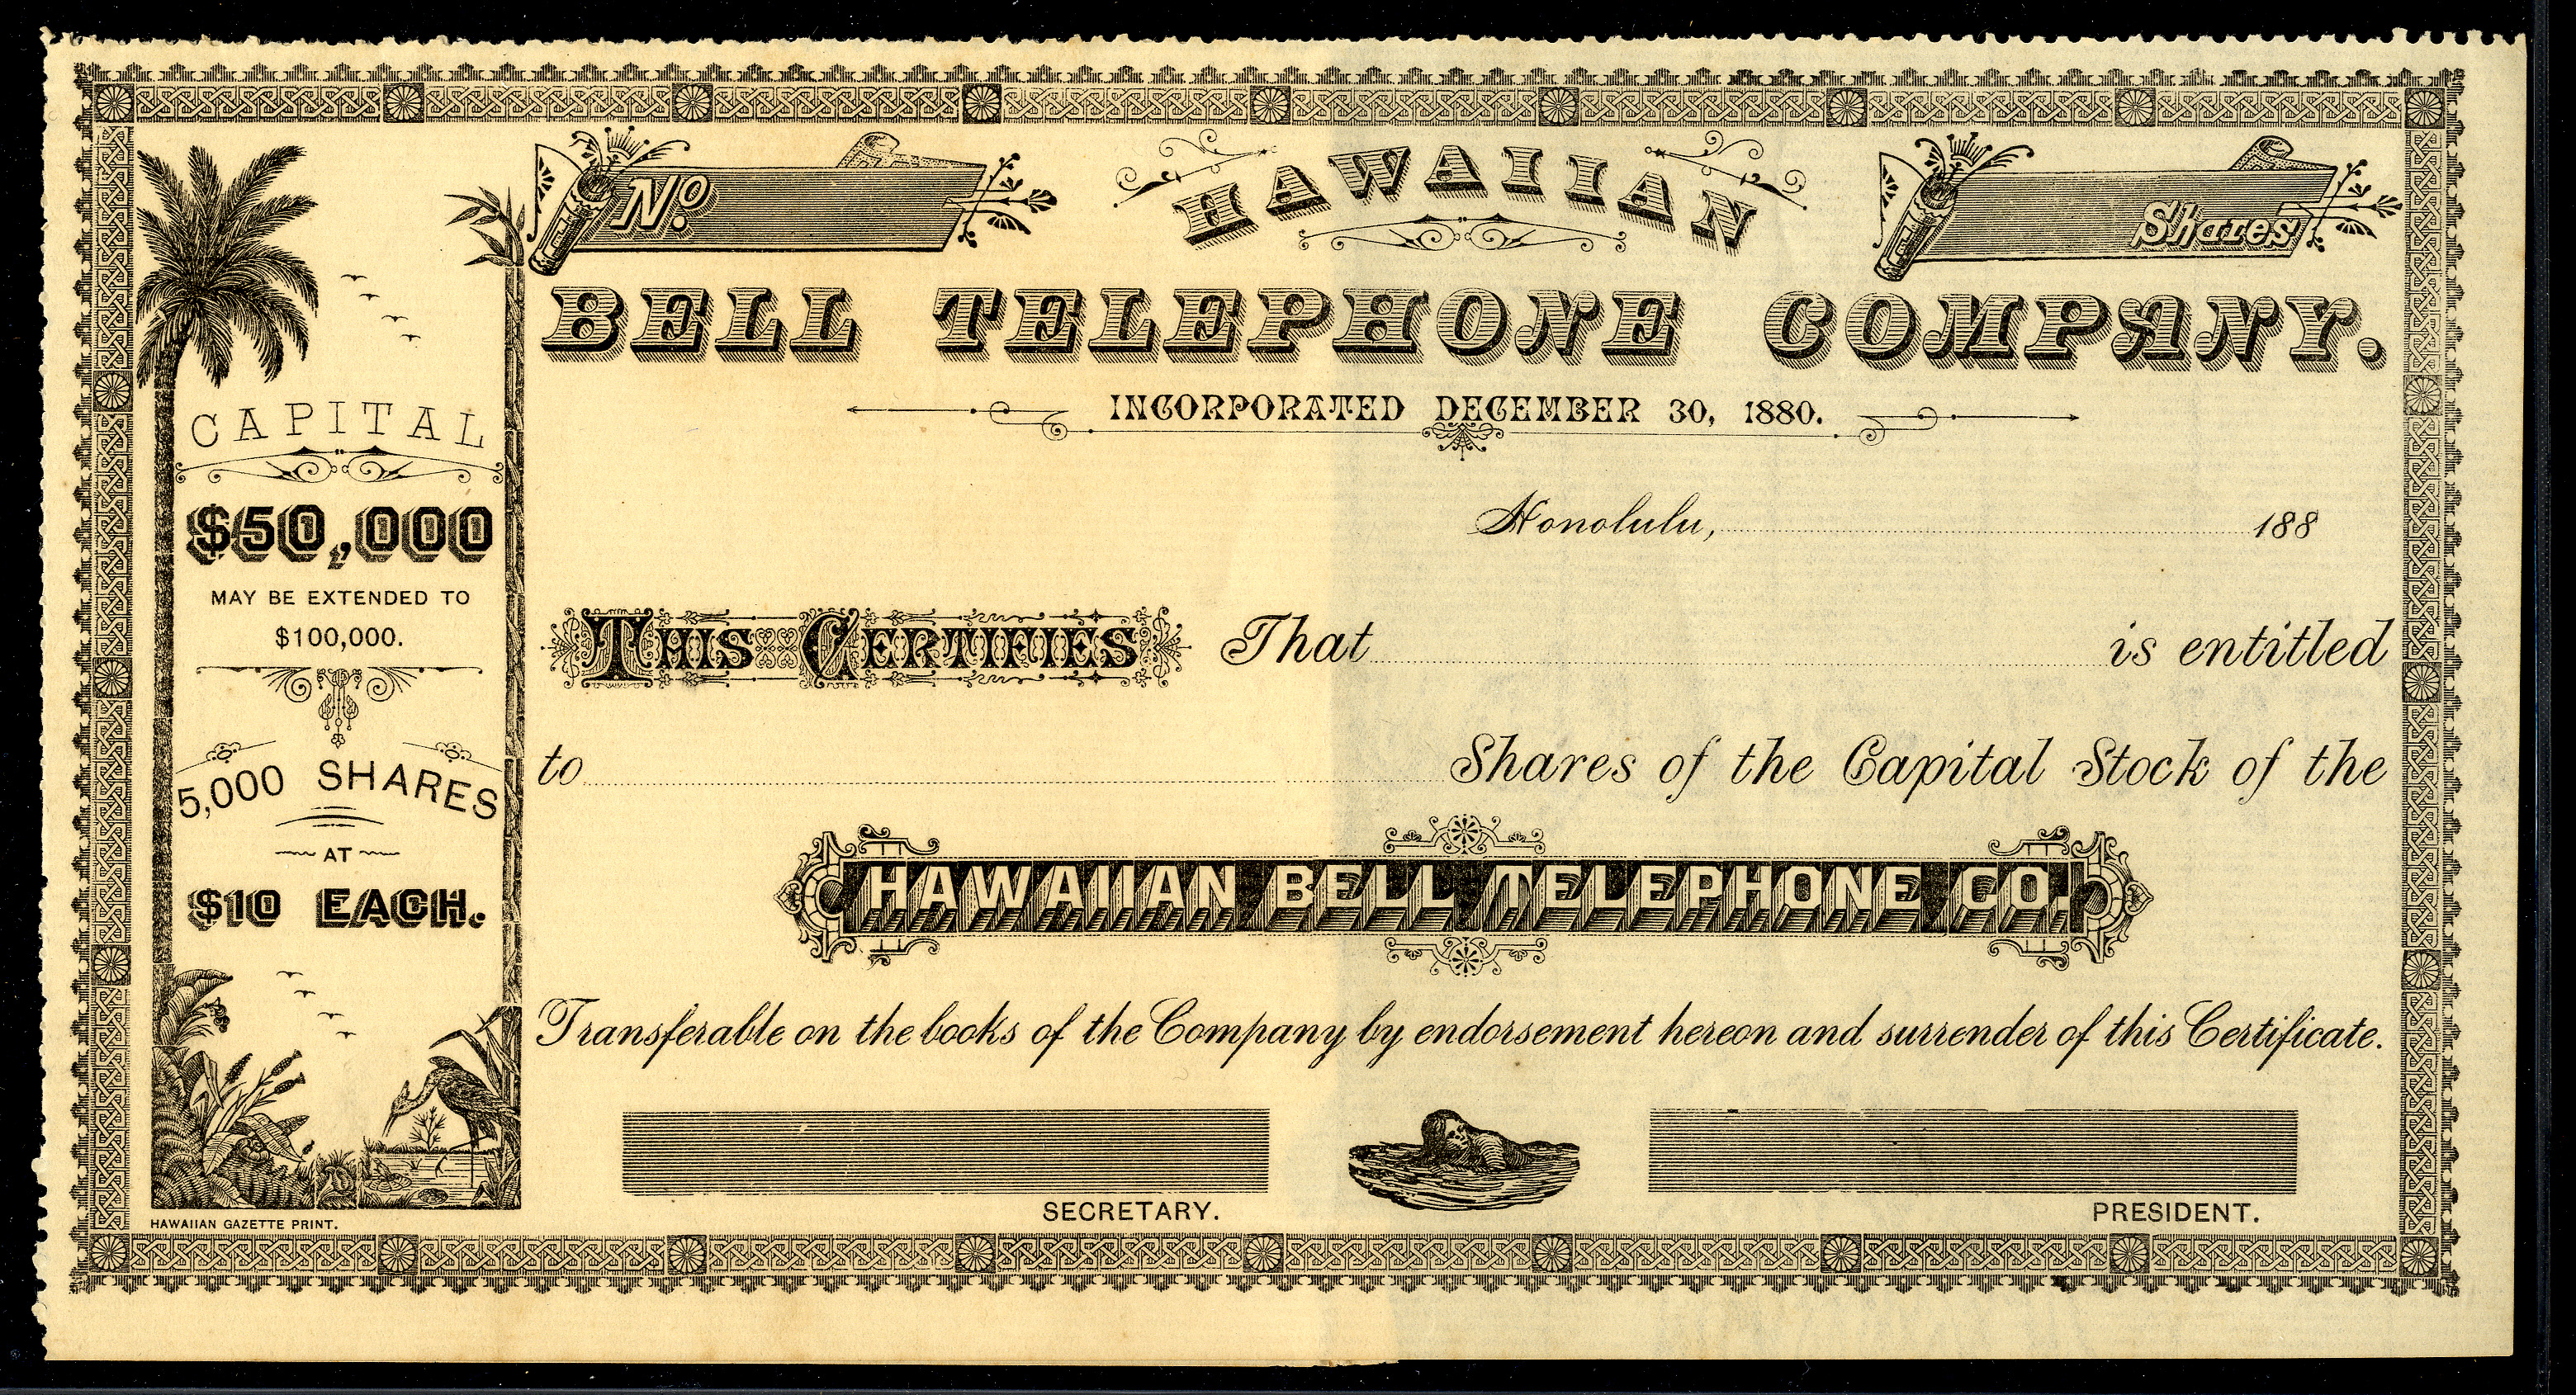 No.
HAWAIIAN
Shares
BELL TELEPHONE COMPANY.
INCORPORATED DECEMBER 30, 1880.
CAPITAL
$50,000
MAY BE EXTENDED TO
$100,000.
5,000 SHARES
AT
$10 EACH.
Honolulu, 188
THIS CERTIFIES That is entitled
to Shares of the Capital Stock of the
HAWAIIAN BELL TELEPHONE CO.
Transferable on the books of the Company by endorsement hereon and surrender of this Certificate.
SECRETARY.
PRESIDENT.
HAWAIIAN GAZETTE PRINT.